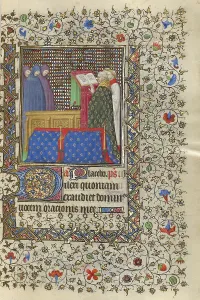 Placebo. ps
Dilexi quoniam
exaudiet domin
uocem oracionis mee